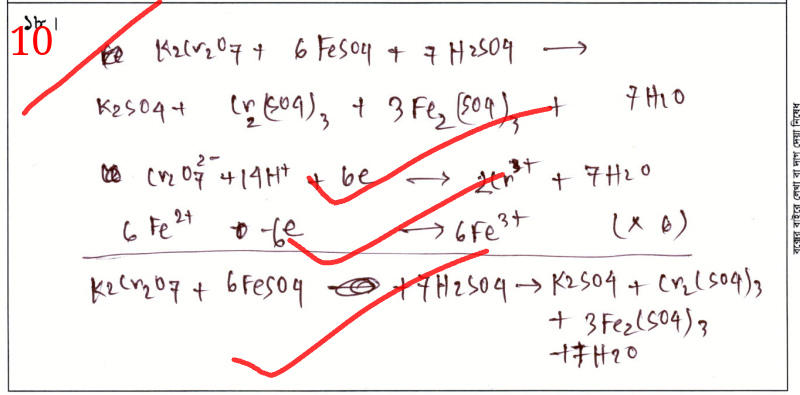 ১৮।
10
K2Cr2O7 + 6 FeSO4 + 7 H2SO4 →
K2SO4 + Cr2(SO4)3 + 3 Fe2(SO4)3 + 7H2O
Cr2O7^2- + 14H+ + 6e ↔ 2Cr^3+ + 7H2O
6 Fe^2+ -6e ↔ 6Fe^3+ (× 6)
K2Cr2O7 + 6FeSO4 + 7H2SO4 → K2SO4 + Cr2(SO4)3
+ 3Fe2(SO4)3
+7H2O
বক্সের বাইরে লেখা বা দাগ দেয়া নিষেধ